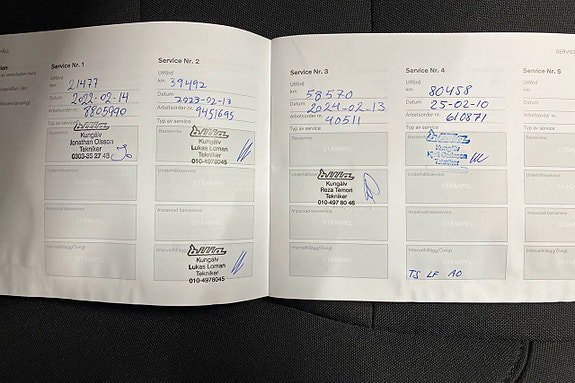 Service Nr. 1
Utförd
km 21477
Datum 2022-02-14
Arbetsorder nr. 8805990
Typ av service
Basservice
Kungälv
Jonathan Olsson
Tekniker
0303-85 27 48
Underhållsservice
STÄMPEL
Anpassad basservice
STÄMPEL
Intervalltillägg/Övrigt
STÄMPEL
Service Nr. 2
Utförd
km 39492
Datum 2023-02-13
Arbetsorder nr. 9451695
Typ av service
Basservice
Kungälv
Lukas Loman
Tekniker
010-4978045
Underhållsservice
STÄMPEL
Anpassad basservice
STÄMPEL
Intervalltillägg
Kungälv
Lukas Loman
Tekniker
010-4978045
Service Nr. 3
Utförd
km 58570
Datum 2024-02-13
Arbetsorder nr. 40511
Typ av service
Basservice
STÄMPEL
Underhållsservice
Kungälv
Reza Temori
Tekniker
010-497 80 46
Anpassad basservice
STÄMPEL
Intervalltillägg/Övrigt
STÄMPEL
Service Nr. 4
Utförd
km 80458
Datum 25-02-10
Arbetsorder nr. 610871
Typ av service
Basservice
Kungälv
Tekniker
Underhållsservice
STÄMPEL
Anpassad basservice
STÄMPEL
Intervalltillägg/Övrigt
STÄMPEL
TS LF AO
Service Nr. 5
Utförd
km
Datum
Arbetsorder nr.
Typ av service
Basservice
Underhållsservice
Anpassad basservice
Intervalltillägg/Övrigt